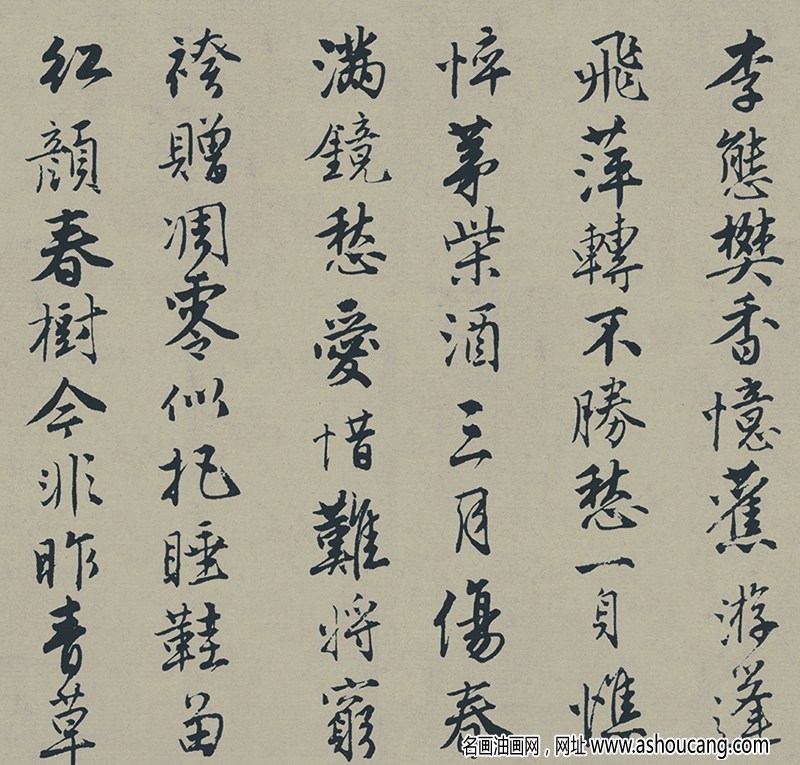 李態樊香憶舊游蓬
飛萍轉不勝愁一身憔
悴茅柴酒三月傷春
滿鏡愁愛惜難將窮
袴贈凋零似把睡鞋留
紅顏春樹今非昨青草
名画油画网，网址 www.ashoucang.com